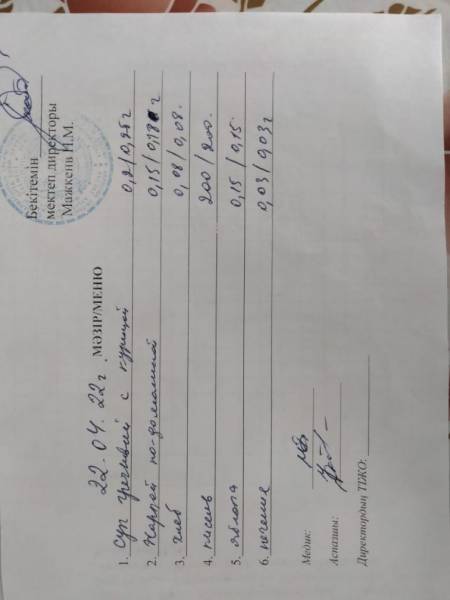 Бекітемін
мектеп директоры
Мажкенв Н.М.
22.04.22г. МӘЗІР/МЕНЮ
1. Суп гречивый с курицей 0,2/0,25г
2. Жаркой по-домашней 0,15/0,18г
3. хлеб 0,08/0,08.
4. кисель 200/200.
5. яблоко 0,15/0,15
6. печение 0,03/0,03г
Медик:
Аспазшы:
Директордың ТІЖО: